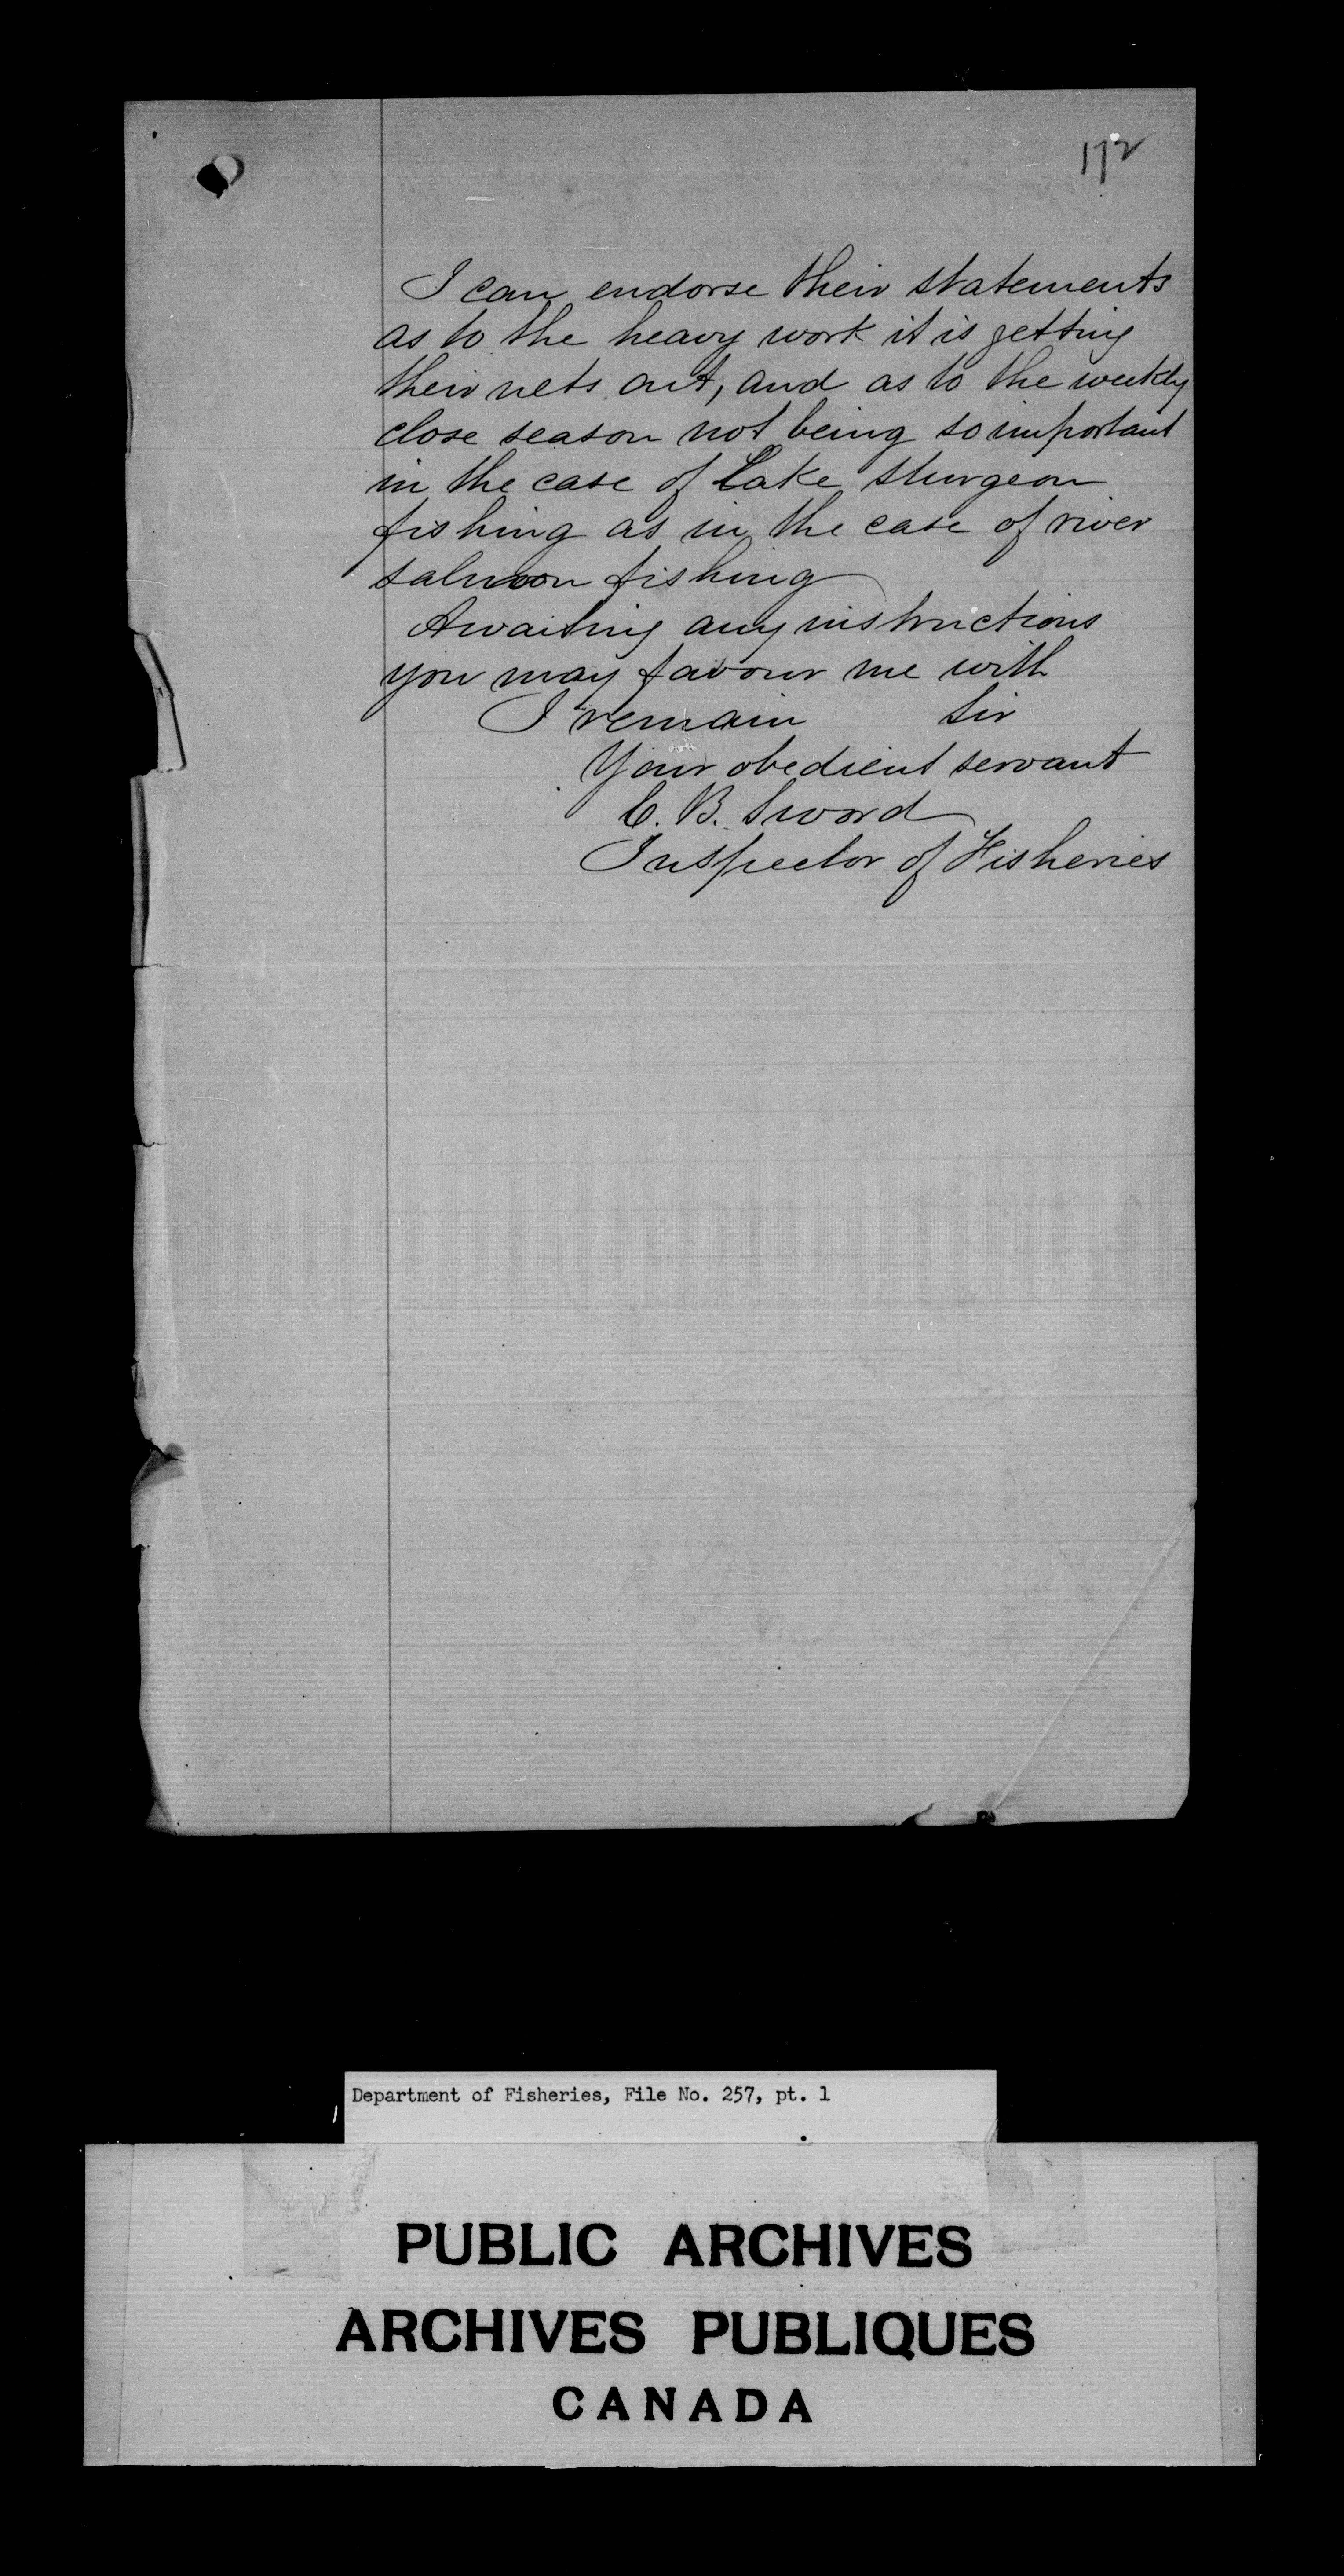 172
I can endorse their statements
as to the heavy work it is getting
their nets out, and as to the weekly
close season not being so important
in the case of Lake sturgeon
fishing as in the case of river
salmon fishing
Awaiting any instructions
you may favour me with
I remain Sir
Your obedient servant
C. B. Sword
Inspector of Fisheries
Department of Fisheries, File No. 257, pt. 1
PUBLIC ARCHIVES
ARCHIVES PUBLIQUES
CANADA